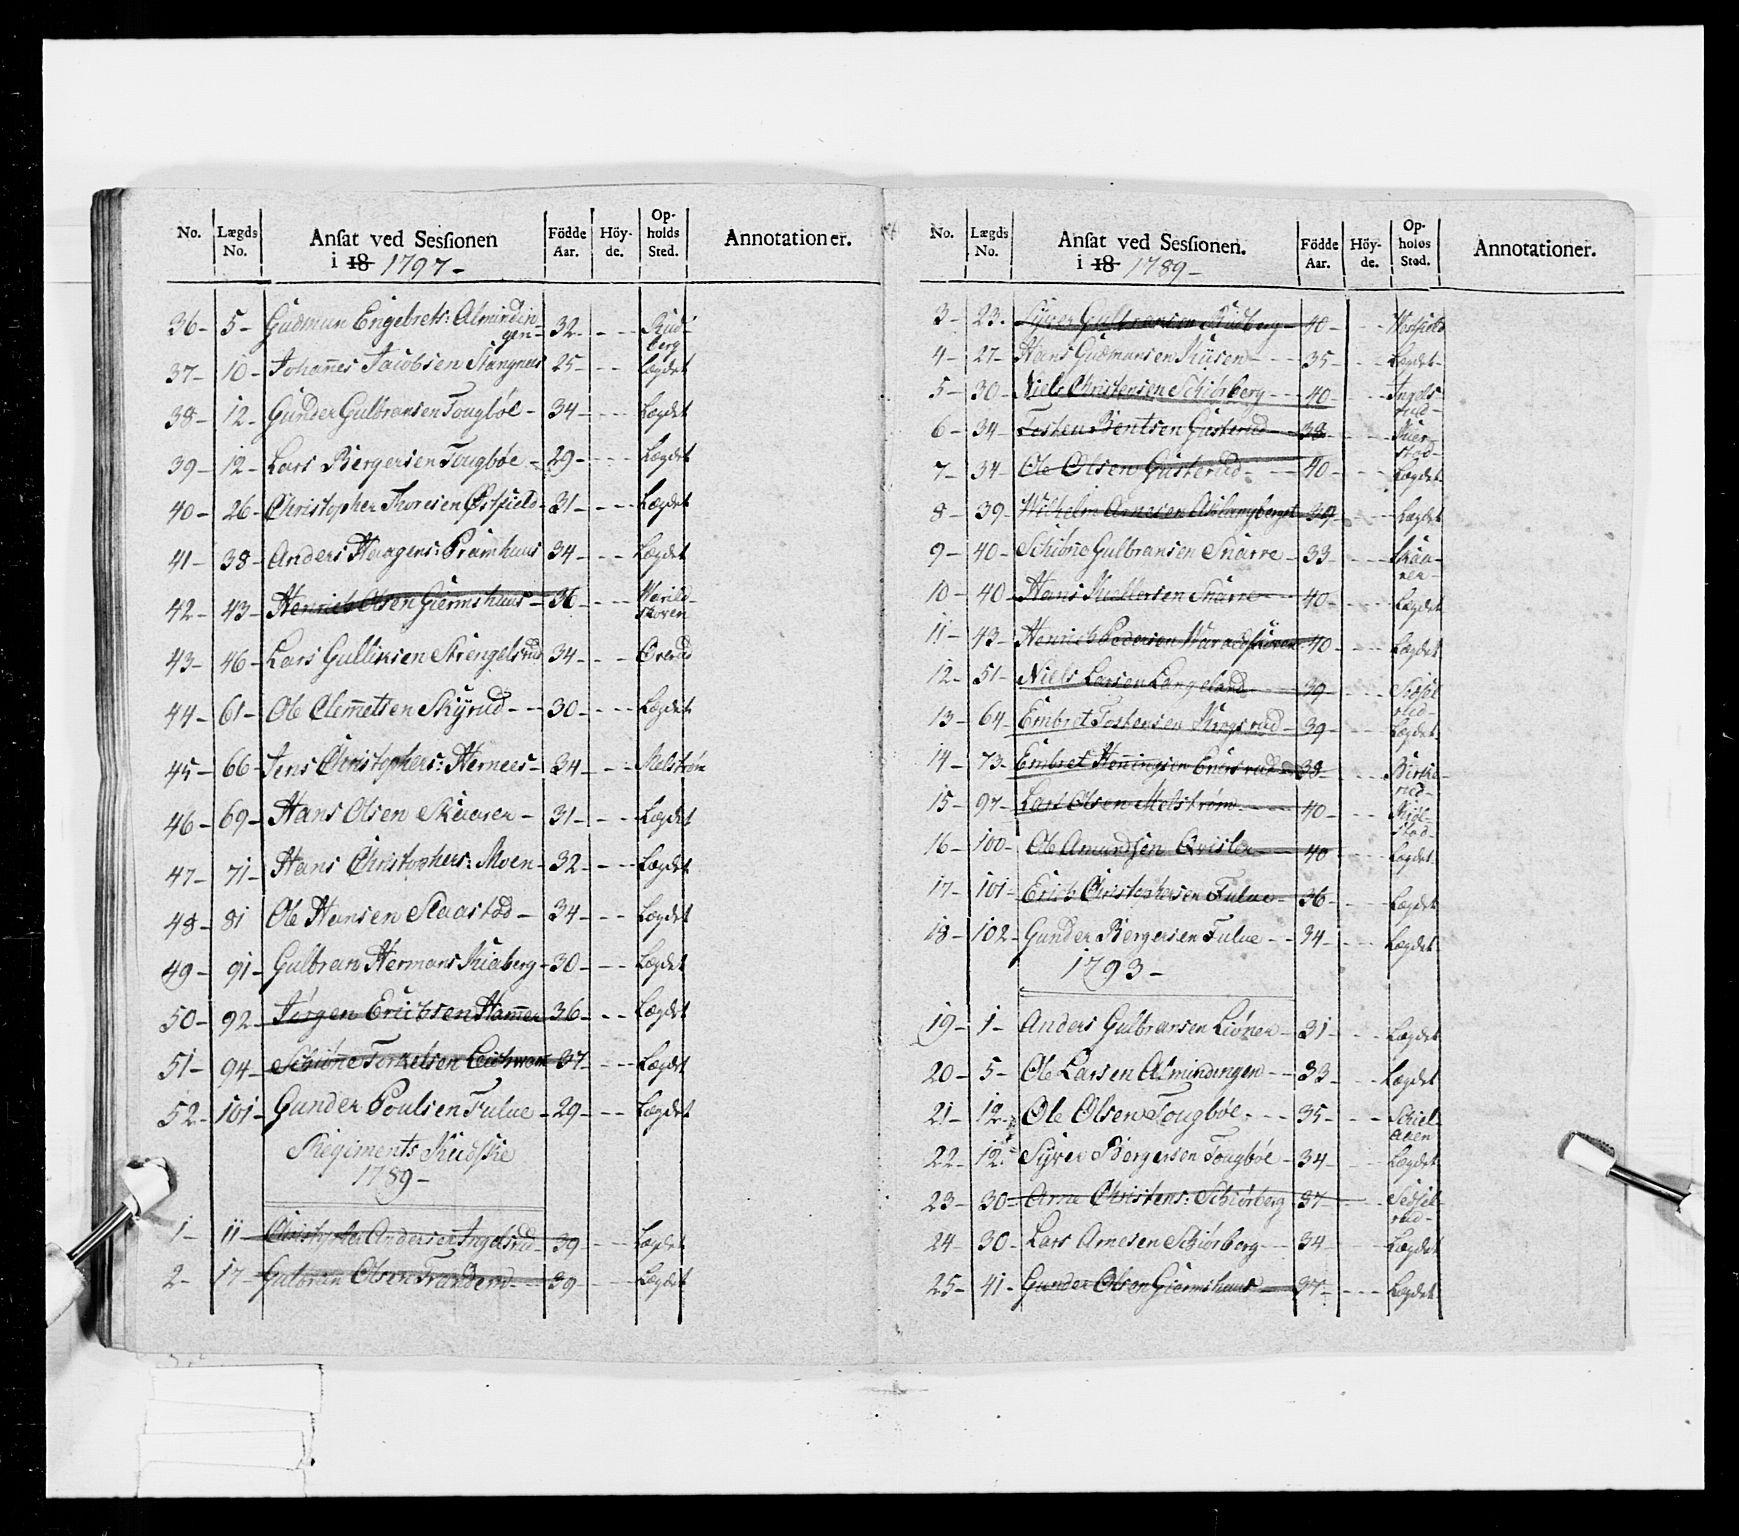 No. Lægds No. Ansat ved Sessionen i 18 1797 - Födde Aar. Höyde. Opholds Sted. Annotationer.
36 - 5 - Gudmun Engebrets: Almindingen - 32 - - - Rudberg
37 - 10 - Johannes Jacobsen Stangnes 25 - - - Lægdet
38 - 12 - Gunder Gulbransen Tougbøe - 34 - - - Lægdet
39 - 12 - Lars Bergersen Tougbøe - 29 - - - Lægdet
40 - 26 - Christopher Thoresen Østfield - 31 - - - Lægdet
41 - 38 - Anders Haagens: Pramhuus 34 - - - Lægdet
42 - 43 - Henrich Olsen Giermshuus - 36 - - - Varildskoven
43 - 46 - Lars Gulliksen Strengelsrud 34 - - - Overud
44 - 61 - Ole Clemmetsen Skyrud - - 30 - - - Lægdet
45 - 66 - Jens Christophers: Hernees - 34 - - - Melstrøm
46 - 69 - Hans Olsen Skaarer - 31 - - - Lægdet
47 - 71 - Hans Christophers: Moen - 32 - - - Lægdet
48 - 81 Ole Hansen Slaastad - 34 - - - Lægdet
49 - 91 - Gulbran Hermans Kiaberg - 30 - - - Lægdet
50 - 92 - Jørgen Erichsen Hammer 36 - - - Lægdet
51 - 94 - Schiønne Torkelsen 37 - - - Lægdet
52 - 101 - Gunder Poulsen Fulue - 29 - - - Lægdet
Regiments Kudske
1789 -
1 - 11 - Christopher Andersen Ingelsrud - 39 - - - Lægdet
2 - 17 - Gulbran Olsen Tranderud - - 39 - - - Lægdet
No. Lægds No. Ansat ved Sessionen. i 18 1789 - Födde Aar. Höyde. Opholds Sted. Annotationer.
3 - 23. Syver Gulbransen Rudberg - 40 - - -
4 - 27 - Hans Gudmunsen - - - 35 - - - Lægdet -
5 - 30 - Niels Christensen Schiørberg - - - 40 - - - Ingelsrud -
6 - 34 - Tosten Bentsen Gusterud - 38 - - -
7 - 34 - Ole Olsen Gusterud - - - 40 - - - Lægdet
8 - 39 - Wilhelm Arnesen Aslangberget 39 - - - Lægdet
9 - 40 - Schiønne Gulbransen Snarre - 33 - - - Skaarer -
10 - 40 - Hans Snarre - 40 - - - Lægdet
11 - 43 - Henrich Pedersen Waraldskoven 40 - - - Lægdet
12 - 51 - Niels Larsen Langeland - 39 - - -
13 - 64 - Embret Tostensen Krogsrud - 39 - - - Lægdet
14 - 73 - Embret Henningsen Enersrud 38 - - - Birkerud -
15 - 97 - Lars Olsen Melstrøm - - - 40 - - -
16 - 100 - Ole Amundsen Qvisler - - 40 - - - Lægdet
17 - 101 - Erich Christophersen Fulue - 36 - - - Lægdet
18 - 102 - Gunder Bergersen Fulue - - 34 - - - Lægdet
1793 -
19 - 1 - Anders Gulbransen Liøner - 31 - - - Lægdet
20 - 5 - Ole Larsen Almindingen - - 33 - - - Lægdet
21 - 12 - Ole Olsen Tougbøe - - - 35 - - -
22 - 12 - Syver Bergersen Tougbøe - 34 - - - Lægdet
23 - 30 - Arne Christens: Schiørberg 37 - - -
24 - 30 - Lars Arnesen Schiørberg - - 34 - - - Lægdet
25 - 41 - Gunder Olsen Giermshuus - 37 - - - Lægdet